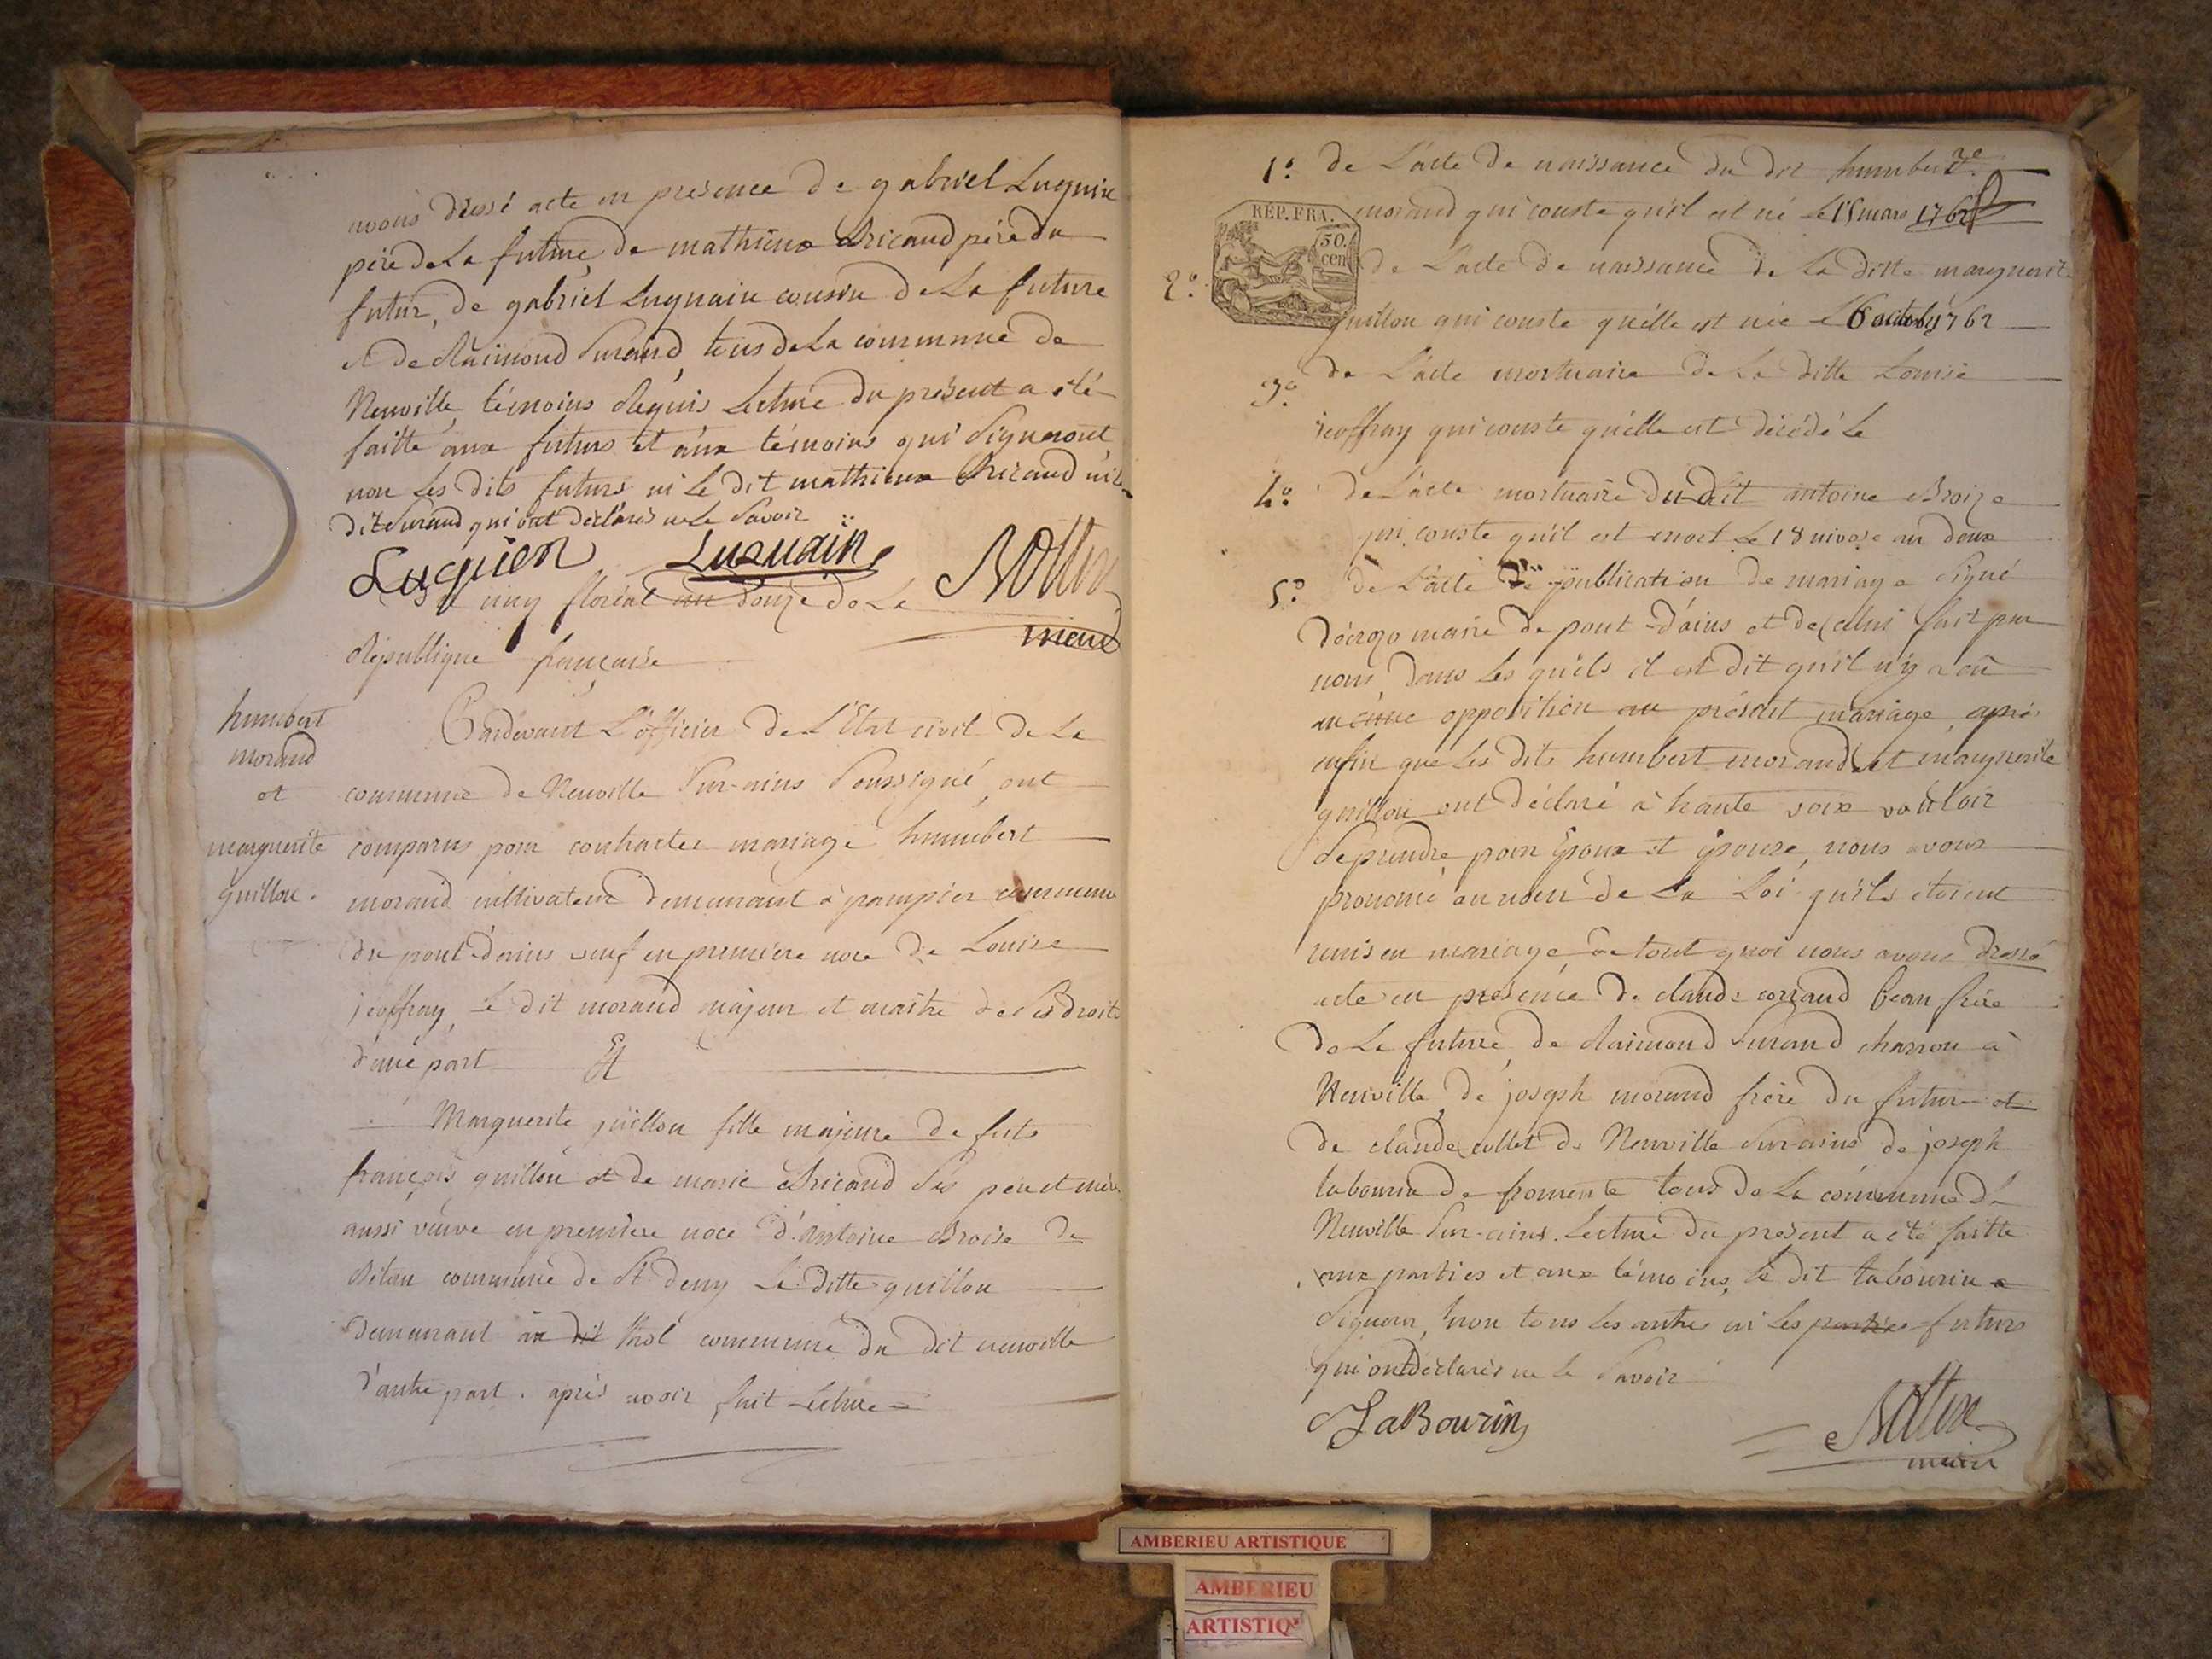 avons dressé acte en présence de gabriel Luguin
père de La future, de mathieux Bricaud père du
futur, de gabriel Luguain cousin de La future
et de Raimond Surand, tous de La commune de
Neuville, témoins Requis Lecture du présent a été
faitte aux futurs et aux témoins qui Signeront
non Les dits futurs ni Le dit mathieux Bricaud ni Le
dit Surand qui ont déclarés ne Le Savoir
Luguien Luguain
Maire
floréal an douze de La
République française
humbert
morand
et
marguerite
guillon.
Pardevant L'officier de L'Etat civil de La
commune de Neuville Sur-ains Soussigné, ont
comparus pour contracter mariage humbert
morand cultivateur demeurant à pampier commune
du pont-d'ains veuf en première noce de Louise
jeoffray, Le dit morand majeur et maître de Ses droits
d'une part Et
Marguerite guillon fille majeure de feûs
françois guillon et de marie Bricaud Ses père et mère
aussi veuve en première noce d'antoine Broise de
commune de St. deny La ditte guillon
demeurant au dit thol commune du dit neuville
d'autre part. après avoir fait Lecture
1° de L'acte de naissance du dit humbert
REP. FRA.
50.
cen
morand qui conste qu'il est né Le 15 mars 1762
2° de L'acte de naissance de La ditte marguerite
guillon qui conste quélle est née Le 6 octobre 1762
3° de L'acte mortuaire de La ditte Louise
jeoffray qui conste quélle est décédé Le
4° de L'acte mortuaire du dit antoine Broize
qui conste qu'il est mort Le 18 nivose an deux
5° de L'acte de publication de mariage Signé
maire de pont-d'ains et de celui fait par
nous, dans Les quels il est dit qu'il n'y a eû
aucune opposition au présent mariage, après
enfin que Les dits humbert morand et marguerite
guillon ont déclaré à haute voix vouloir
Se prendre pour Epoux et épouse, nous avons
prononcé au nom de La Loi qu'ils étoient
unis en mariage de tout quoi nous avons dressé
acte en présence de claude corraud beau frère
de La future, de Raimond Surand charron à
Neuville, de joseph morand frère du futur et
de claude collet de Neuville Sur-ains de joseph
tabourin de fromente tous de La commune de
Neuville Sur-ains. Lecture du présent a été faitte
aux parties et aux témoins, Le dit tabourin a
Signer, non tous Les autres ni Les parties futurs
qui ont déclarés ne Le Savoir
J TaBourin
maire
AMBERIEU ARTISTIQUE
AMBERIEU
ARTISTIQ